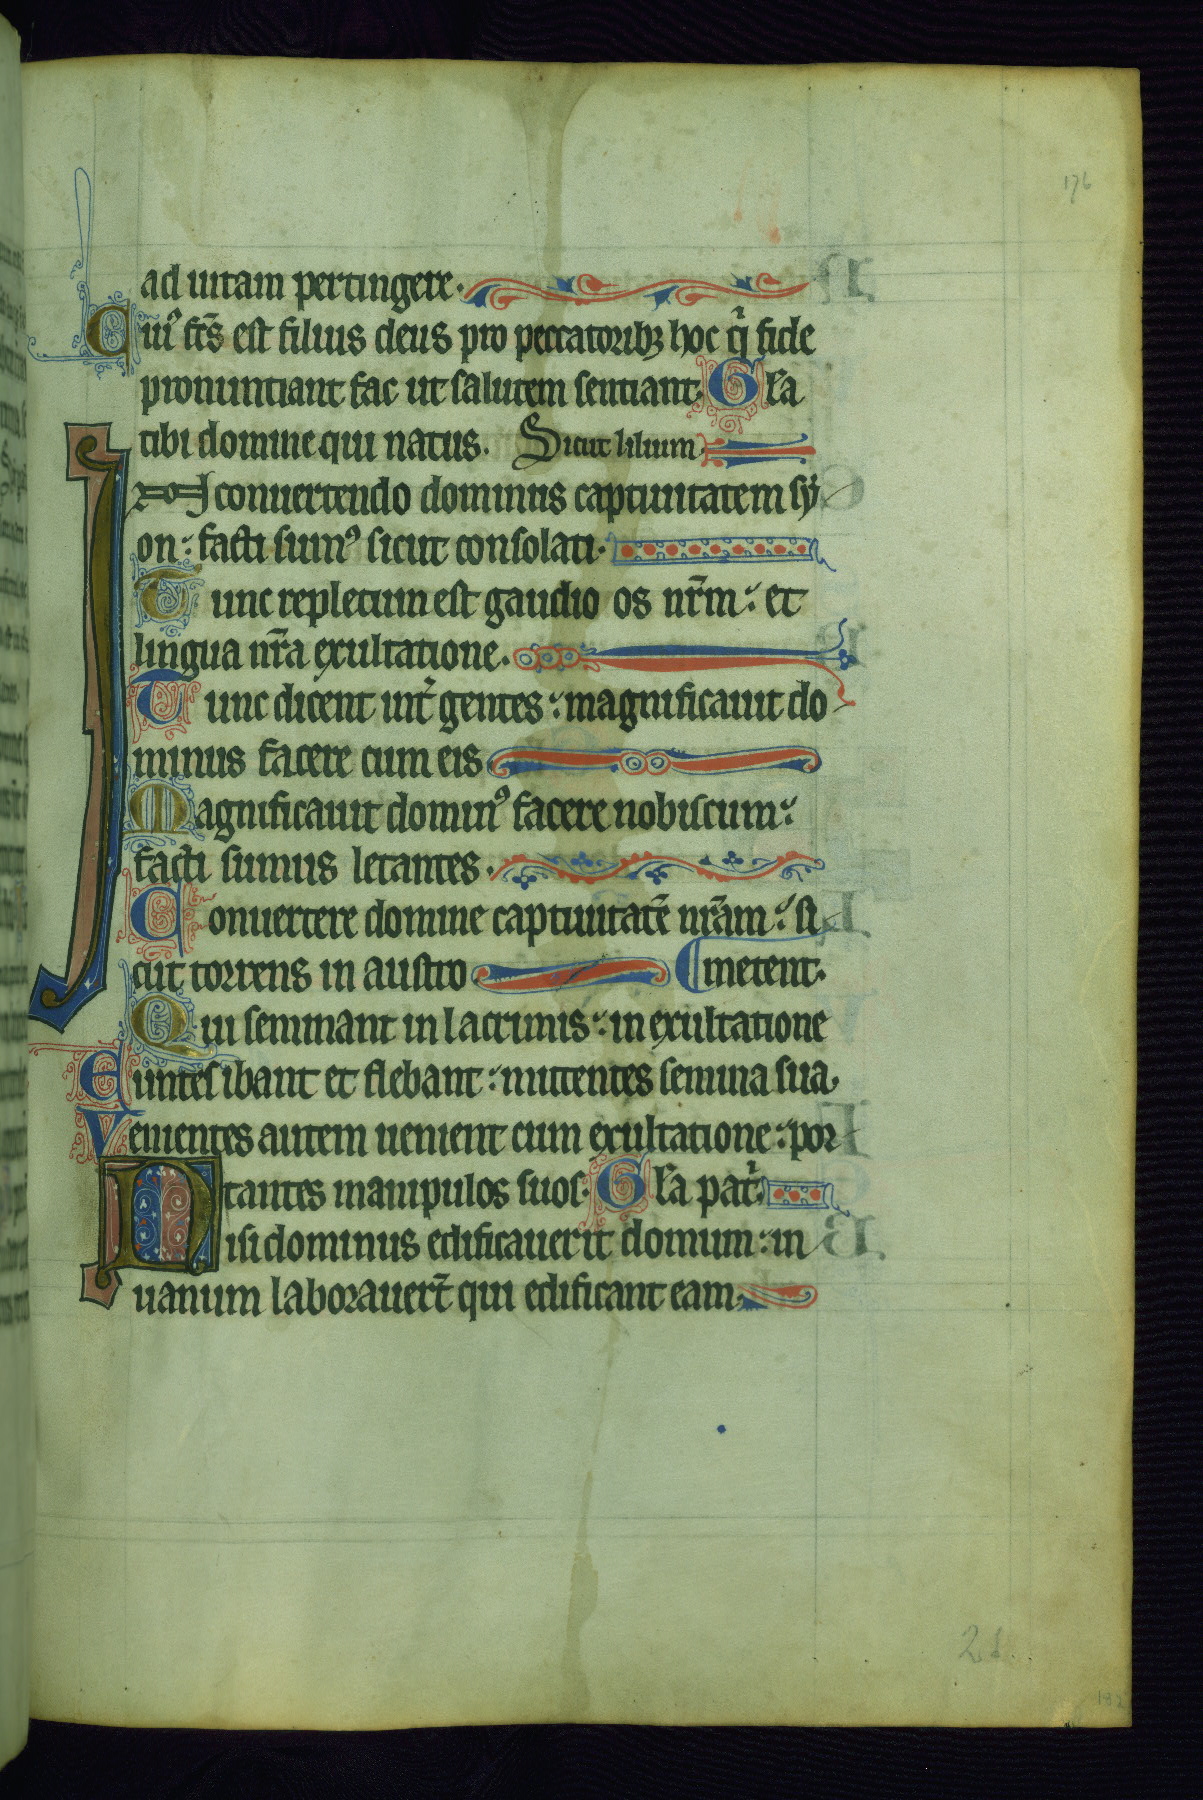 176
ad uitam pertingere.
Cui⁹ fc̄s est filius deus pro peccatoribꝫ hoc qͥ fide
pronuntiant fac ut salutem sentiant. Gl̄a
tibi domine qui natus. Sicut lilium
In conuertendo dominus captiuitatem sẏ
on: facti sum⁹ sicut consolati.
Tunc repletum est gaudio os nr̄m: et
lingua nr̄a exultatione.
Tunc dicent int̾ gentes: magnificauit do
minus facere cum eis
Magnificauit domin⁹ facere nobiscum:
facti sumus letantes.
Conuertere domine captiuitatē nr̄am: si
cut torrens in austro metent.
Qui seminant in lacrimis: in exultatione
Euntes ibant et flebant: mittentes semina sua.
Venientes autem uenient cum exultatione: por
tantes manipulos suos. Gl̄a pat̾.
Nisi dominus edificauerit domum: in
uanum laborauer̄t qui edificant eam.
182